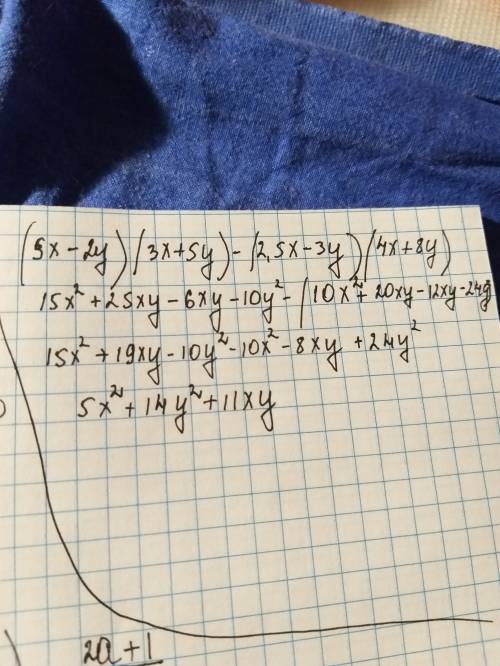 (5x-2y)(3x+5y)-(2,5x-3y)(4x+8y)
15x²+25xy-6xy-10y²-(10x²+20xy-12xy-24y
15x²+19xy-10y²-10x²-8xy+24y²
5x²+14y²+11xy
2a+1